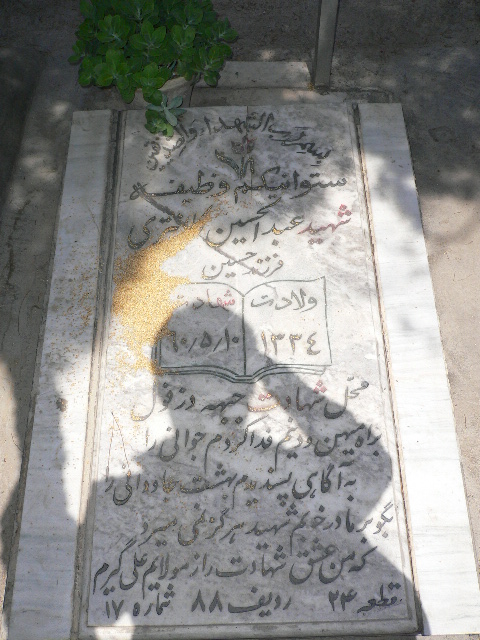 بسم رب الشهدا و الصدیقین
ستوانیکم وظیفه
شهید عبدالحسین
فرزند حسین
ولادت شهادت
۱۳۳۴ ۶۰/۵/۱۰
محل شهادت جبهه دزفول
براه میهن و دینم فدا کردم جوانی را
به آگاهی پسندیدم بهشت جاودانی را
بگو بر مادر خویم شهید هرگز نمی میرد
که من عشق شهادت را ز مولایم علی گیرم
قطعه ۲۴ ردیف ۸۸ شماره ۱۷